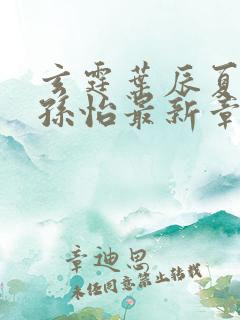 玄霆叶辰夏
孙怡最新章
章迪思
未经同意禁止转载